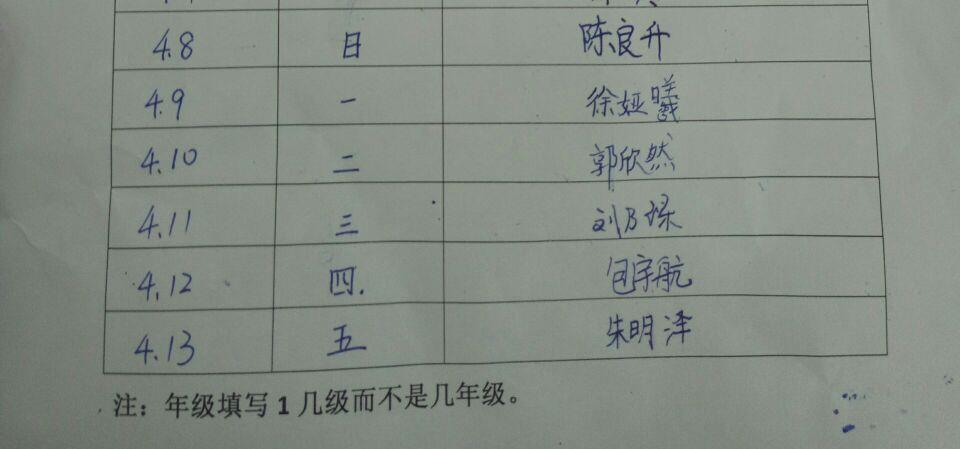 4.8 日 陈良升
4.9 一 徐娅曦
4.10 二 郭欣然
4.11 三 刘乃琛
4.12 四. 包宇航
4.13 五 朱明泽
注：年级填写1几级而不是几年级。